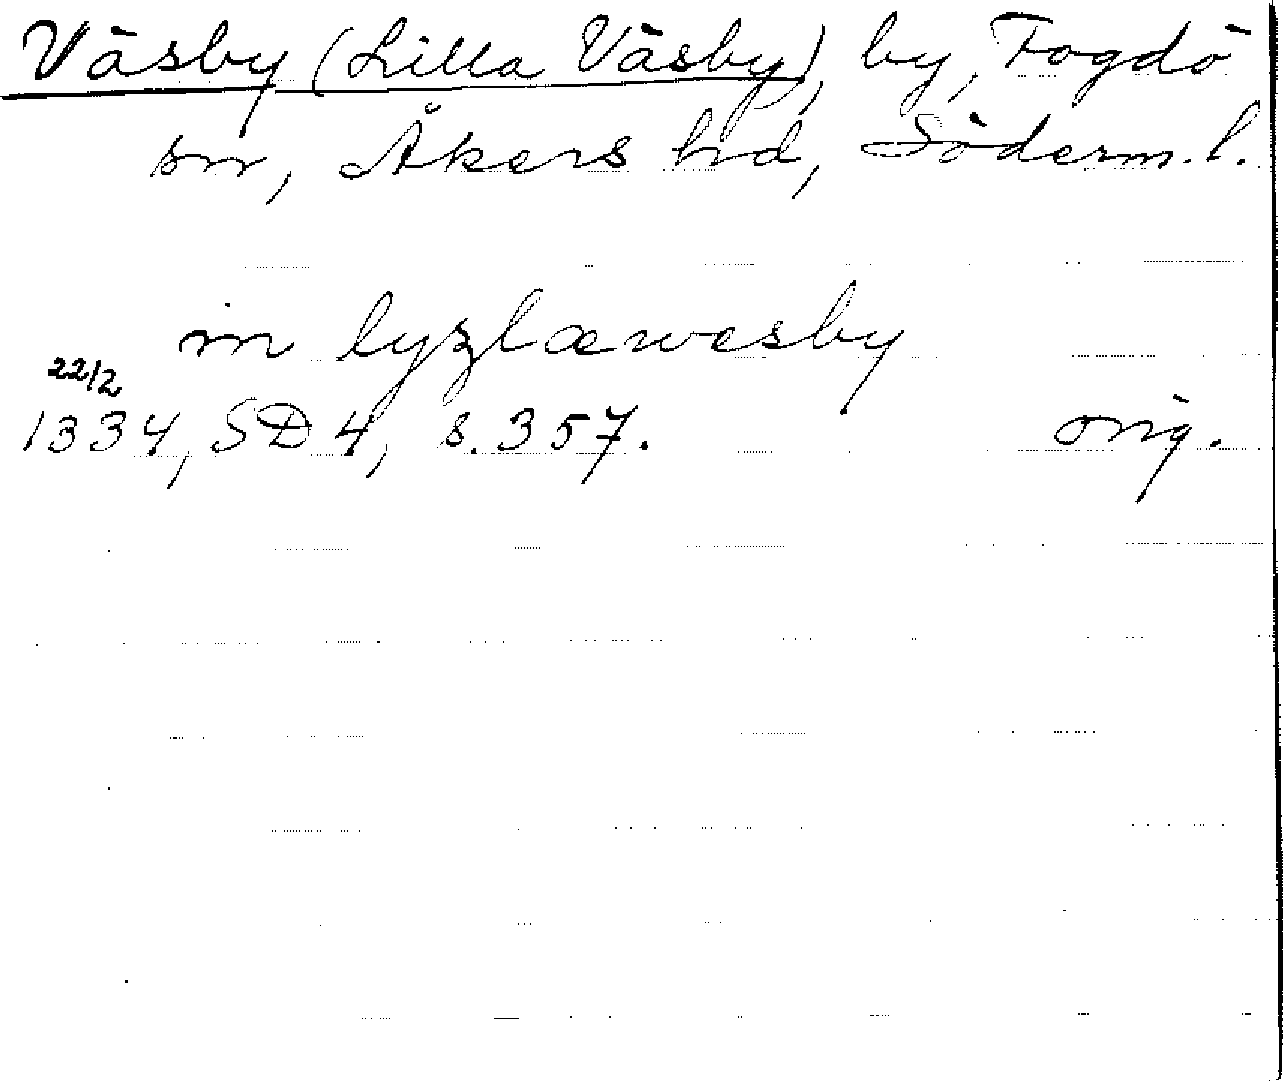 Väsby (Lilla Väsby), by, Fogdö
sn, Åkers hd, Söderm. l.
in lyzlæwesby
22/2
1334, SD 4, s. 357. orig.